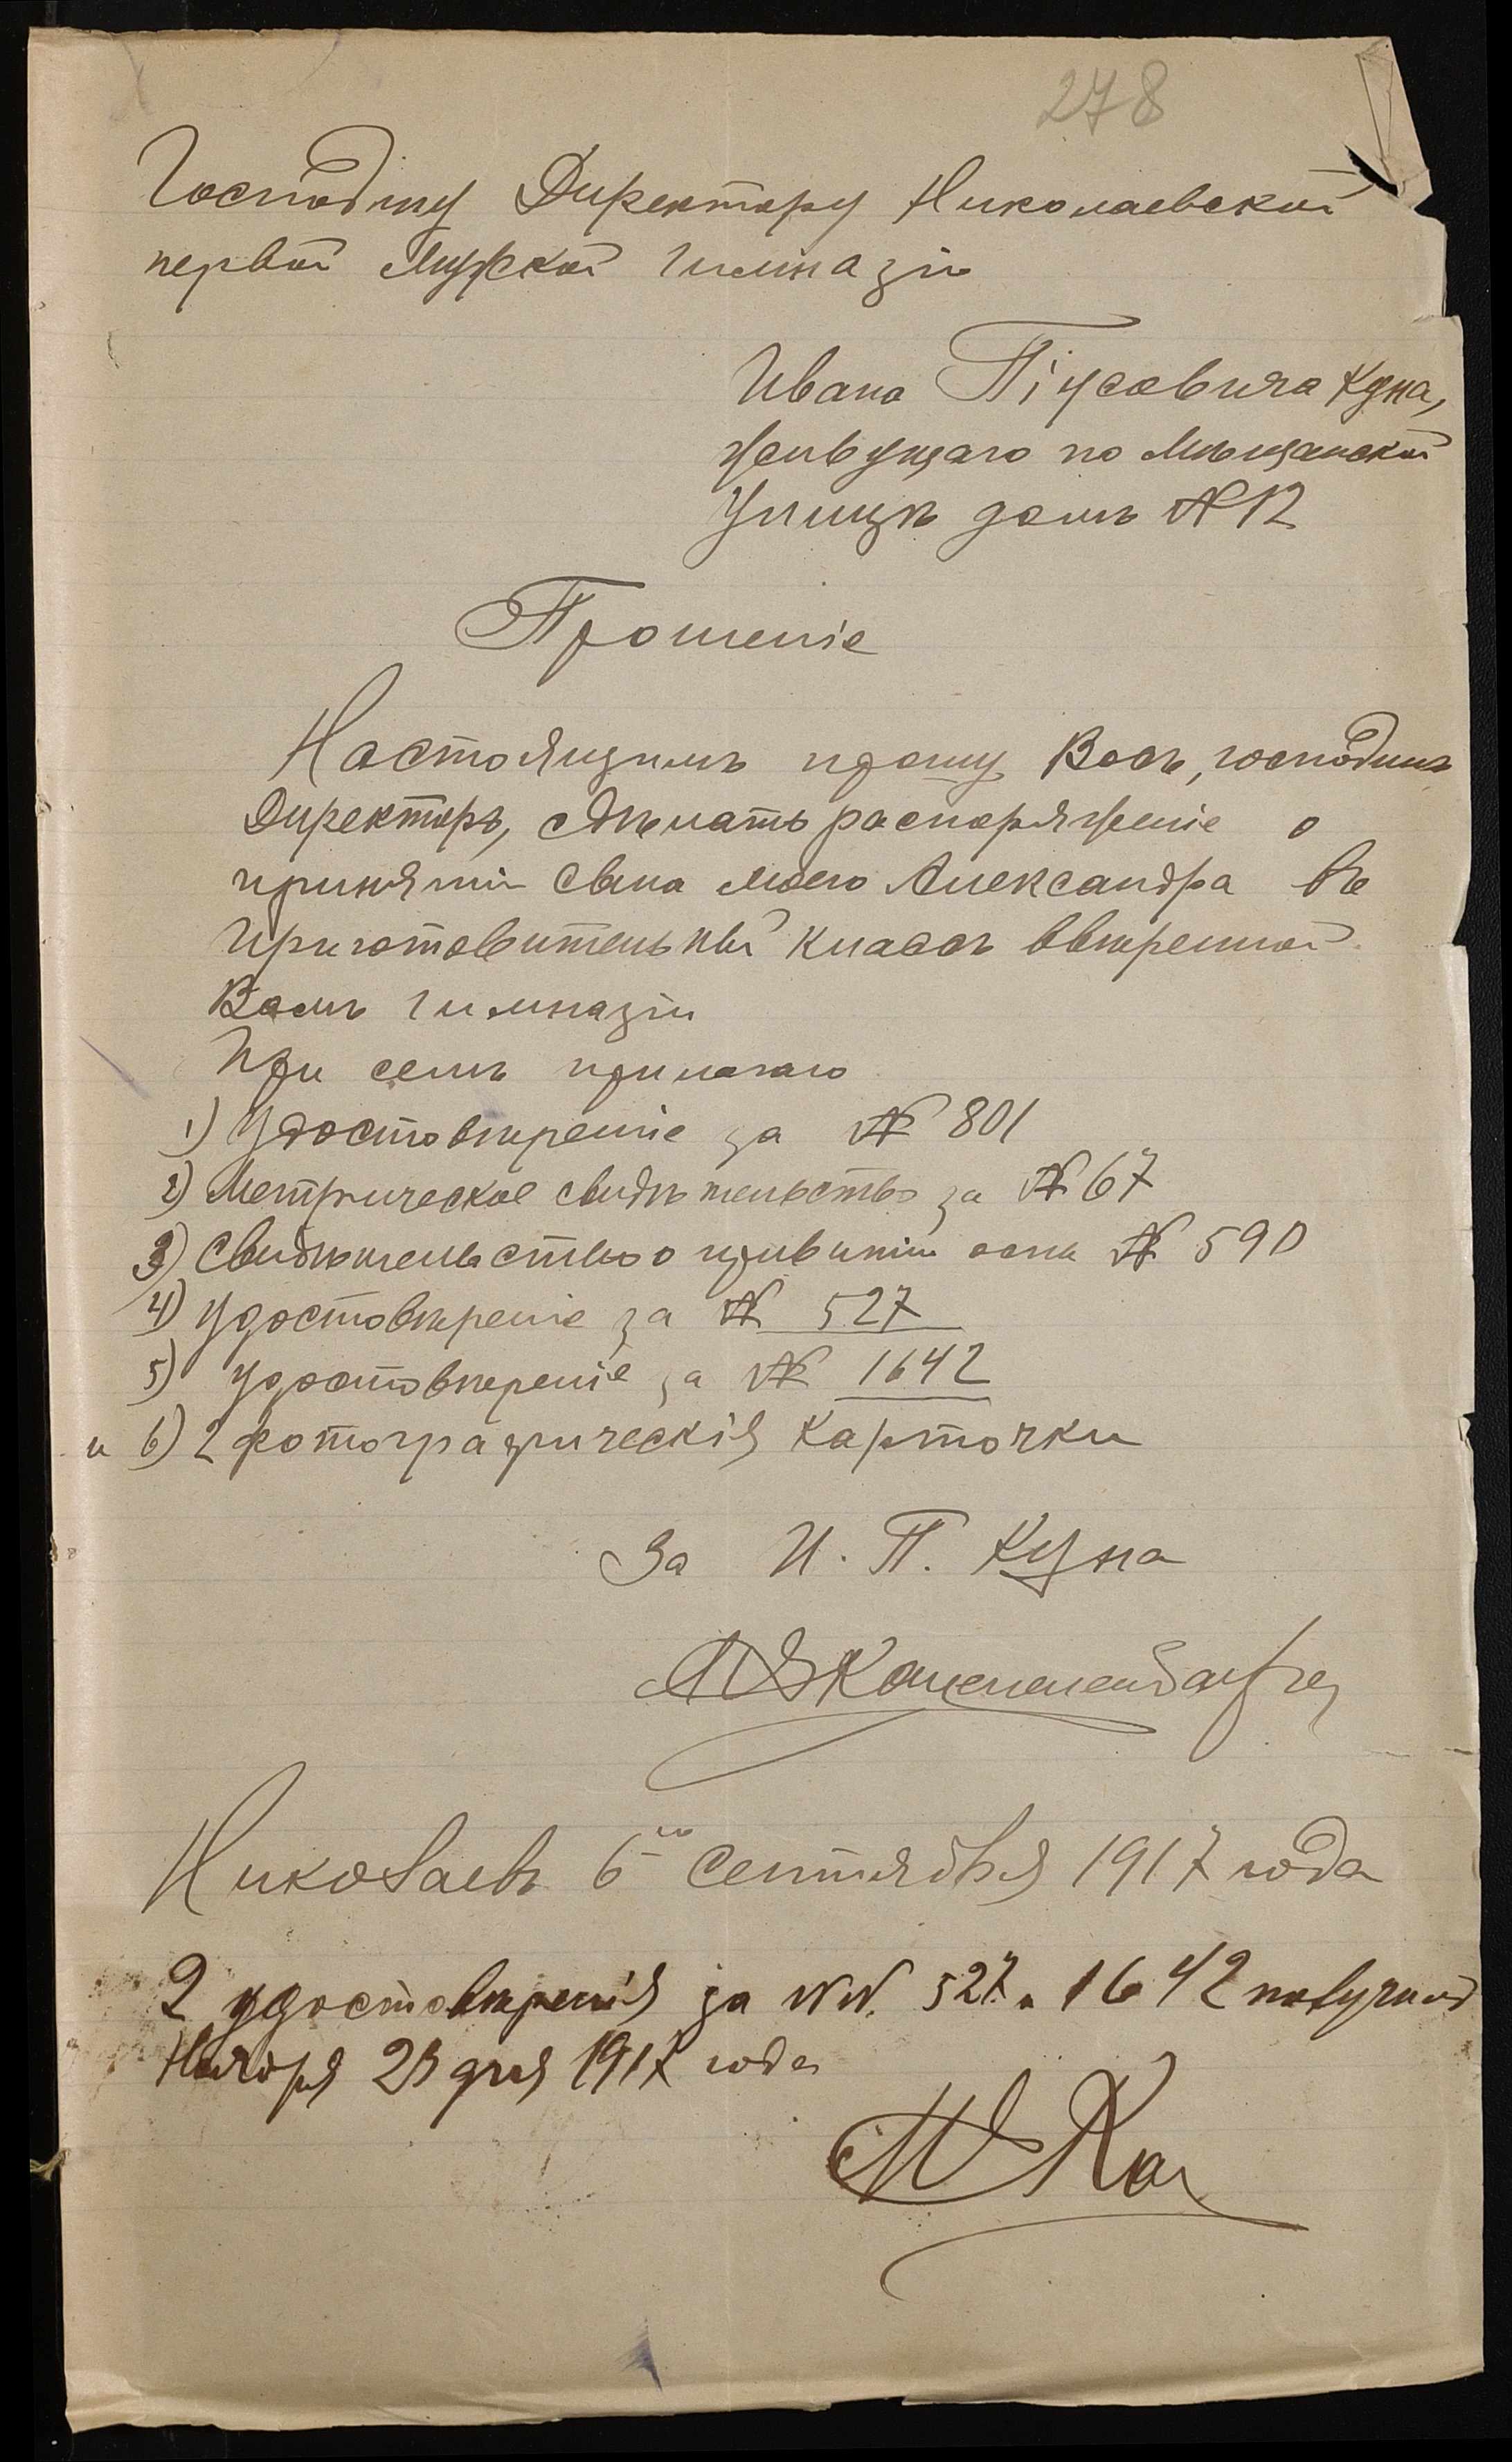 278
Господину Директору Николаевской
первой Мужской Гимназіи
Ивана Піусовича Куна,
живущаго по Мѣщанской
Улицѣ домъ № 12
Прошеніе
Настоящимъ прошу Васъ, господинъ
Директоръ, сдѣлать распоряженіе о
принятіи сына моего Александра въ
Приготовительный классъ ввѣренной
Вамъ гимназіи
При семъ прилагаю
1) Удостовѣреніе за № 801
2) Метрическое свидѣтельство за № 67
3) Свидѣтельство о привитіи оспы № 590
4) Удостовѣреніе за № 527
5) Удостовѣреніе за № 1642
и 6) 2 фотографическія карточки
За И. П. Куна
Николаевъ 6го Сентября 1917 года
2 удостовѣренія за №№. 527 и 1642 получилъ
Ноября 23 дня 1917 года